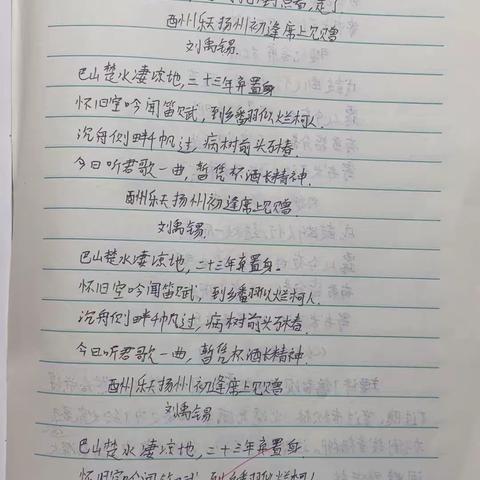 酬州乐天扬州初逢席上见赠
刘禹锡
巴山楚水凄凉地,二十三年弃置身
怀旧空吟闻笛赋,到乡翻似烂柯人.
沉舟侧畔千帆过,病树前头万木春.
今日听君歌一曲,暂凭杯酒长精神.
酬州乐天扬州初逢席上见赠
刘禹锡.
巴山楚水凄凉地,二十三年弃置身.
怀旧空吟闻笛赋,到乡翻似烂柯人.
沉舟侧畔千帆过,病树前头万木春.
今日听君歌一曲,暂凭杯酒长精神.
酬乐天扬州初逢席上见赠
刘禹锡
巴山楚水凄凉地,二十三年弃置身.
怀旧空吟闻笛赋,到乡翻似烂柯人